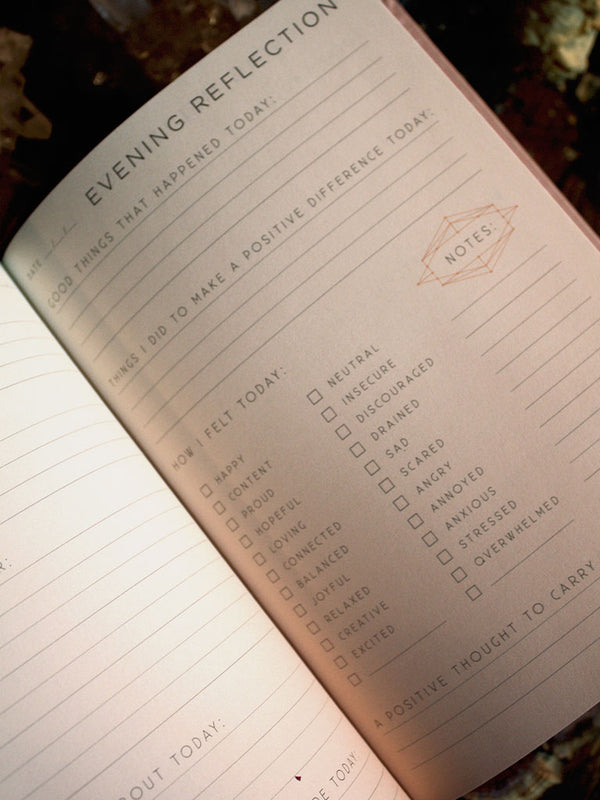 EVENING REFLECTION
DATE / /
GOOD THINGS THAT HAPPENED TODAY:
THINGS I DID TO MAKE A POSITIVE DIFFERENCE TODAY:
HOW I FELT TODAY:
HAPPY
CONTENT
PROUD
HOPEFUL
LOVING
CONNECTED
BALANCED
JOYFUL
RELAXED
CREATIVE
EXCITED
NEUTRAL
INSECURE
DISCOURAGED
DRAINED
SAD
SCARED
ANGRY
ANNOYED
ANXIOUS
STRESSED
OVERWHELMED
NOTES:
A POSITIVE THOUGHT TO CARRY
TODAY:
TODAY: